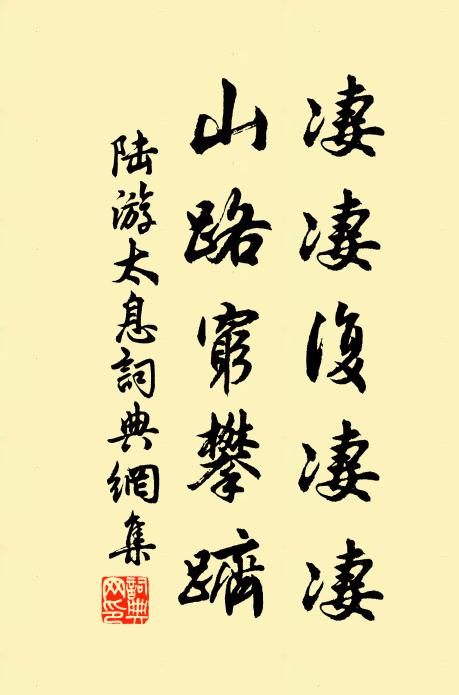 凄凄復凄凄
山路窮攀躋
陸游太息詞典網集
詞典
网印